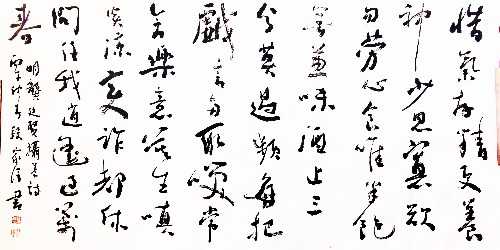 惜氣存精更養
神少思寡欲
勿勞心食唯半飽
無兼味酒止三
分莫過頻每把
戲言多取咲常
含樂意莫生嗔
炎涼変詐都休
問任我逍遙過萬
春
明龔廷賢攝養詩
書